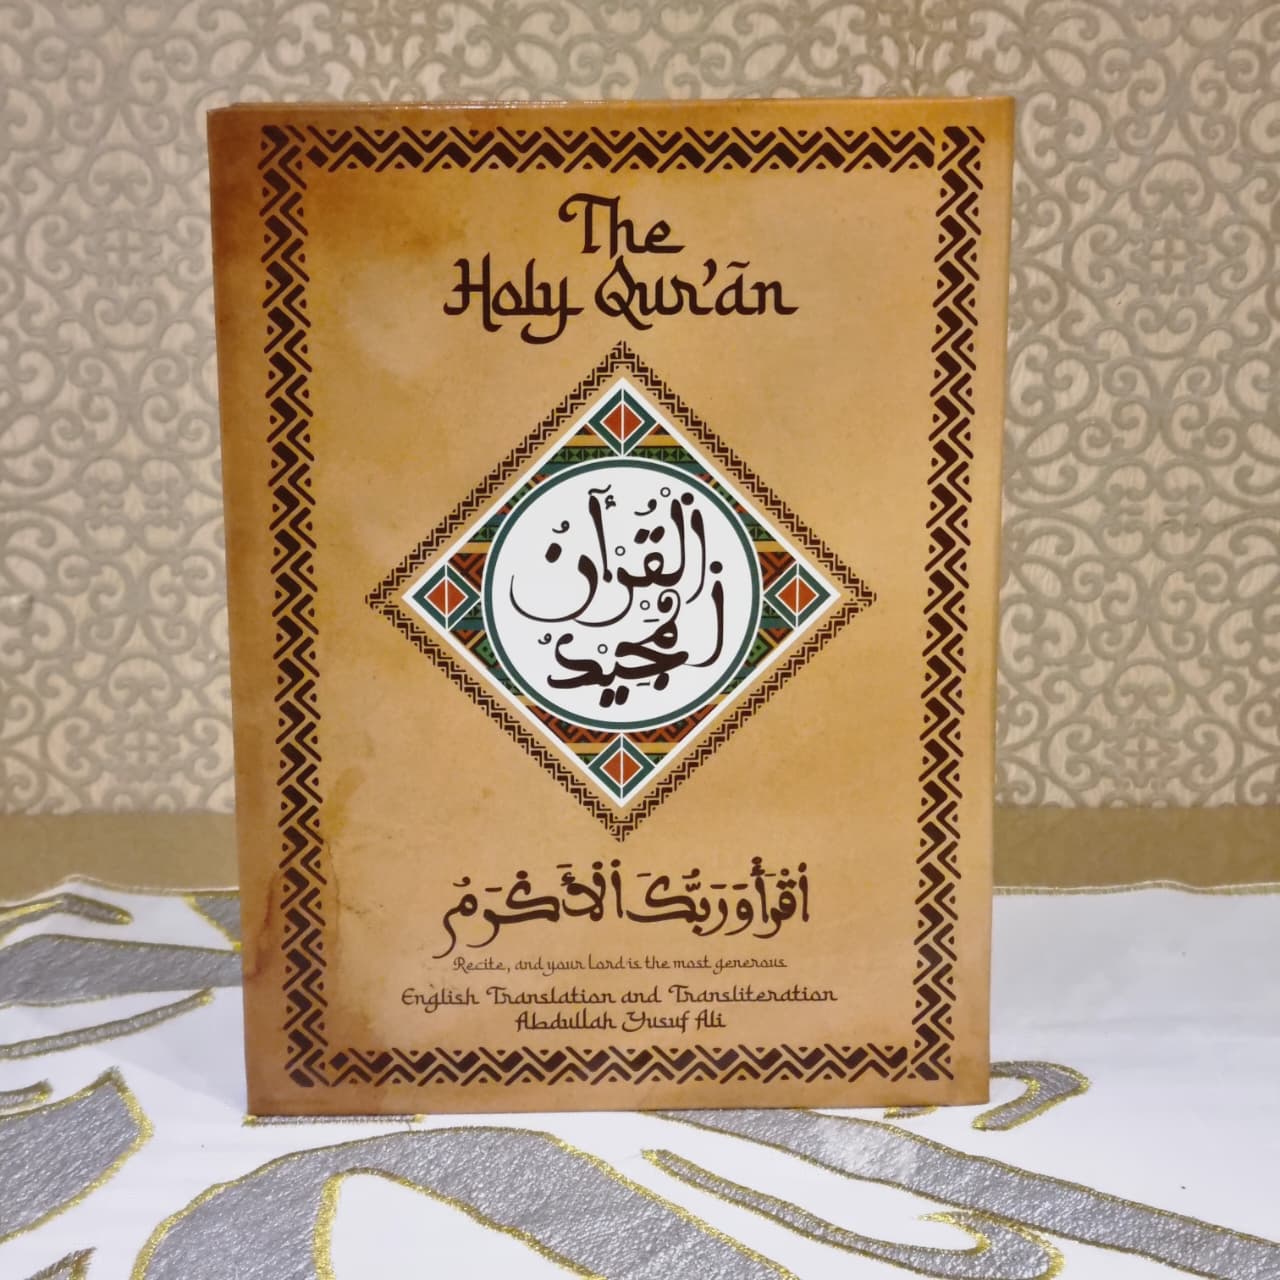 The
Holy Qur'ān
ٱلْقُرْأٓنُ
ٱلْمَجِيْدُ
ٱقْرَأْ وَرَبُّكَ ٱلْأَكْرَمُ
Recite, and your Lord is the most generous
English Translation and Transliteration
Abdullah Yusuf Ali